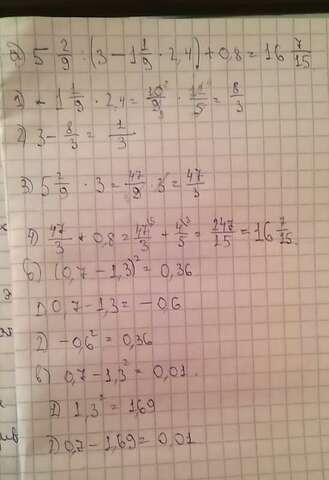 а) 5 2/9 : (3 - 1 1/9 · 2,4) + 0,8 = 16 7/15
1) - 1 1/9 · 2,4 = 10/9 · 12/5 = 8/3
2) 3 - 8/3 = 1/3
3) 5 2/9 · 3 = 47/9 · 3 = 47/3
4) 47/3 + 0,8 = 47/3 + 4/5 = 247/15 = 16 7/15.
б) (0,7 - 1,3)² = 0,36
1) 0,7 - 1,3 = - 0,6
2) - 0,6² = 0,36
в) 0,7 - 1,3² = 0,01.
1) 1,3² = 1,69
2) 0,7 - 1,69 = 0,01